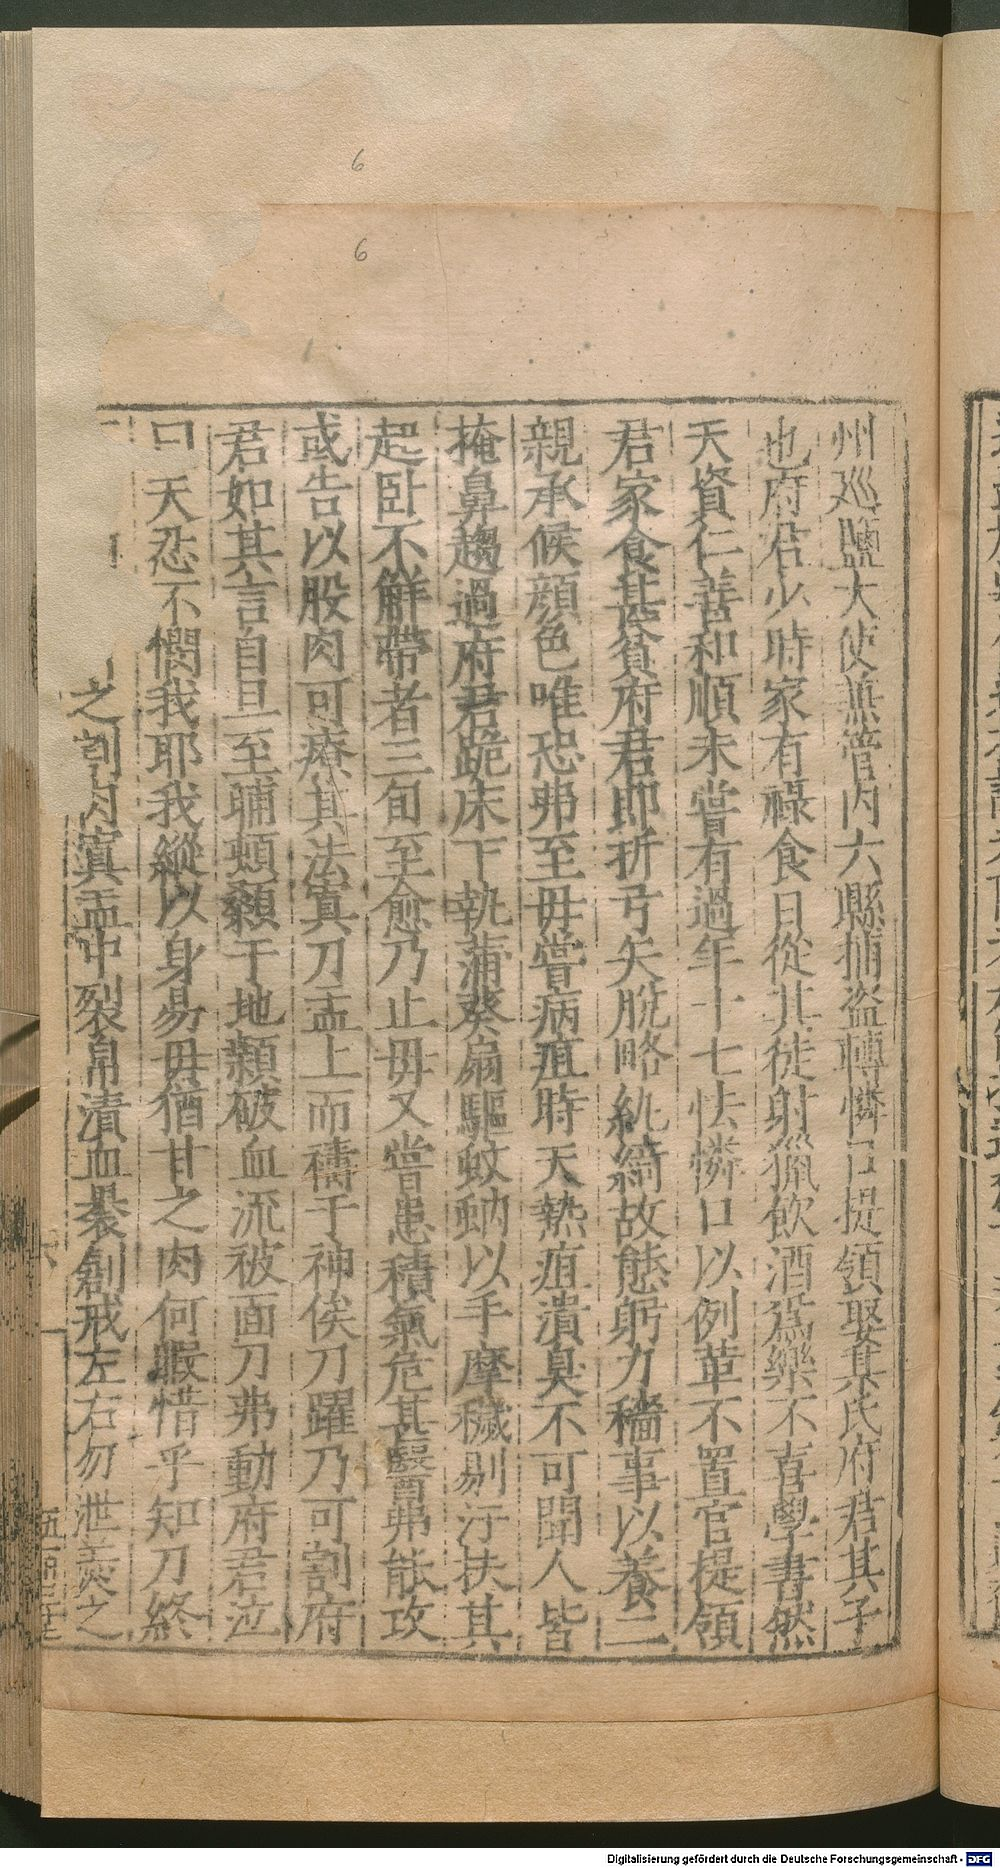 6
6
州廵鹽大使兼管内六縣捕盗轉憐口提領娶其氏府君其子
也府君少時家有祿食日從其徒射獵飲酒爲樂不喜學書然
天資仁善和順未嘗有過年十七怯憐口以例革不置官提領
君家食甚貧府君即折弓矢脫略紈綺故態躬力穡事以養二
親承候顔色唯恐弗至毋嘗病疽時天熱疽潰臭不可聞人皆
掩鼻趨過府君跪床下執蒲葵扇驅蚊蚋以手摩穢剔汙扶其
起卧不解帶者三旬至愈乃止毋又嘗患積氣危甚醫弗能攻
或告以股肉可療其法寘刀盂上而禱于神俟刀躍乃可割府
君如其言自旦至晡頓顙于地顙破血流被面刀弗動府君泣
曰天忍不憫我耶我縱以身易毋猶甘之肉何暇惜乎知刀終
之割肉寘盂中裂帛漬血褁創戒左右勿泄羹之
Digitalisierung gefördert durch die Deutsche Forschungsgemeinschaft - DFG